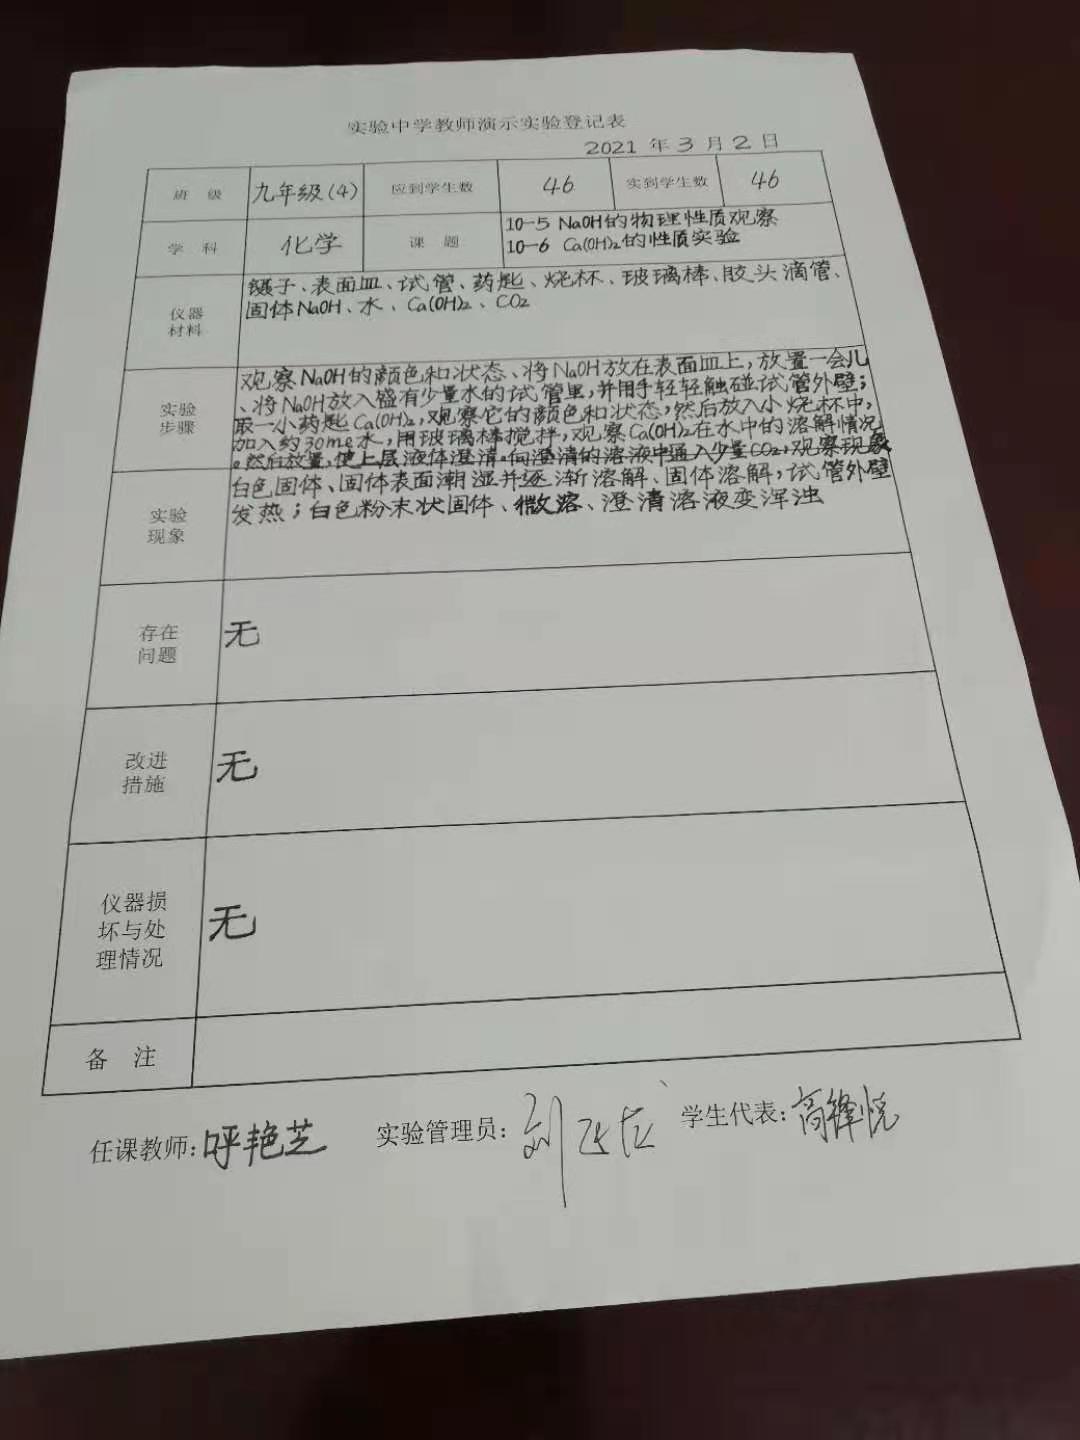 实验中学教师演示实验登记表
2021 年 3 月 2 日
班 级 九年级(4) 应到学生数 46 实到学生数 46
学 科 化学 课 题 10-5 NaOH的物理性质观察
10-6 Ca(OH)₂的性质实验
仪器
材料
镊子、表面皿、试管、药匙、烧杯、玻璃棒、胶头滴管、
固体NaOH、水、Ca(OH)₂、CO₂
实验
步骤
观察NaOH的颜色和状态、将NaOH放在表面皿上,放置一会儿
、将NaOH放入盛有少量水的试管里,并用手轻轻触碰试管外壁;
取一小药匙Ca(OH)₂,观察它的颜色和状态,然后放入小烧杯中,
加入约30ml水,用玻璃棒搅拌,观察Ca(OH)₂在水中的溶解情况
。然后放置,使上层液体澄清。向澄清的溶液中通入少量CO₂,观察现象
实验
现象
白色固体、固体表面潮湿并逐渐溶解、固体溶解,试管外壁
发热;白色粉末状固体、微溶、澄清溶液变浑浊
存在
问题
无
改进
措施
无
仪器损
坏与处
理情况
无
备 注
任课教师:呼艳芝 实验管理员:刘 学生代表:高锋悦